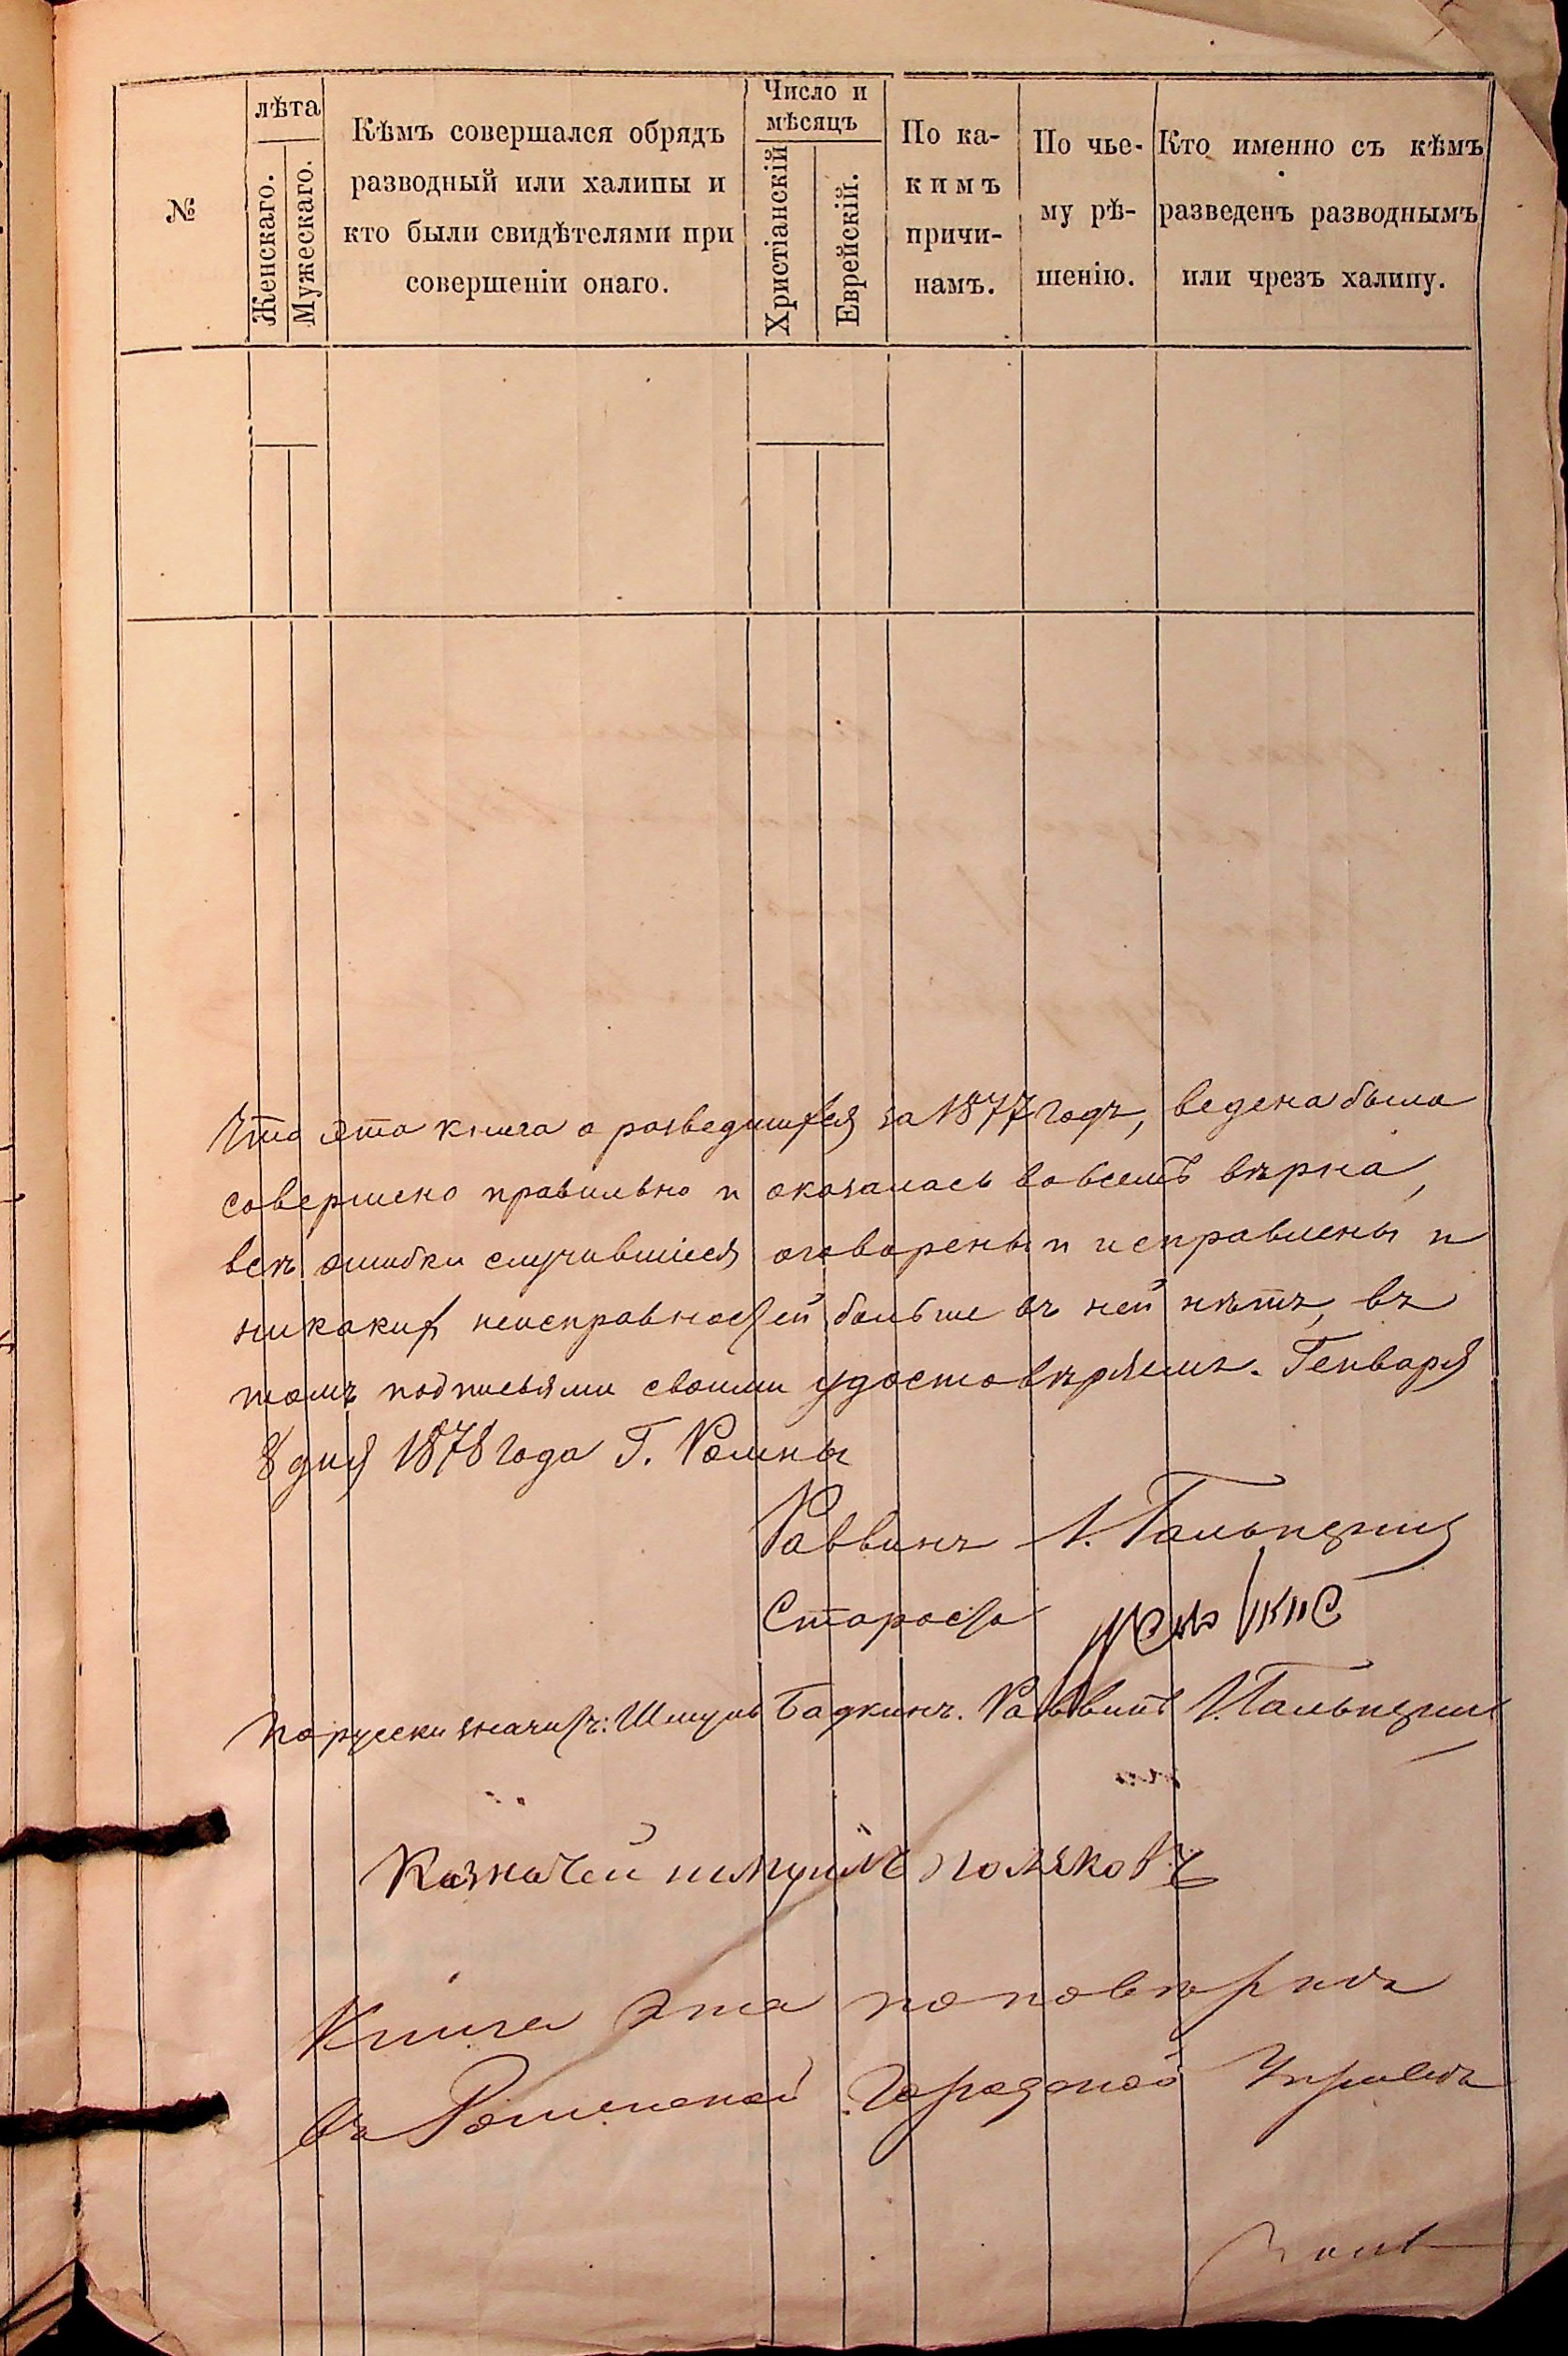 №
лѣта
Женскаго.
Мужескаго.
Кѣмъ совершался обрядъ
разводный или халипы и
кто были свидѣтелями при
совершеніи онаго.
Число и
мѣсяцъ
Христіанскій
Еврейскій.
По ка-
кимъ
причи-
намъ.
По чье-
му рѣ-
шенію.
Кто именно съ кѣмъ
разведенъ разводнымъ
или чрезъ халипу.
Что эта книга о разведшихся за 1877 годъ, ведена была
совершено правильно и оказалась вовсемъ вѣрна,
всѣ ошибки случившіеся оговорены и исправлены и
никаких неисправностей больше въ ней нѣтъ, въ
томъ подписьями своими удостовѣряемъ. Генваря
8 дня 1878 года Г. Ромны
Раввинъ І. Гальперин
Староста
по русски значитъ: Шмуль Бадкинъ. Раввинъ І. Гальперин
Казначей шмуилъ поляковъ
Книга эта
въ Роменской Городской Управѣ